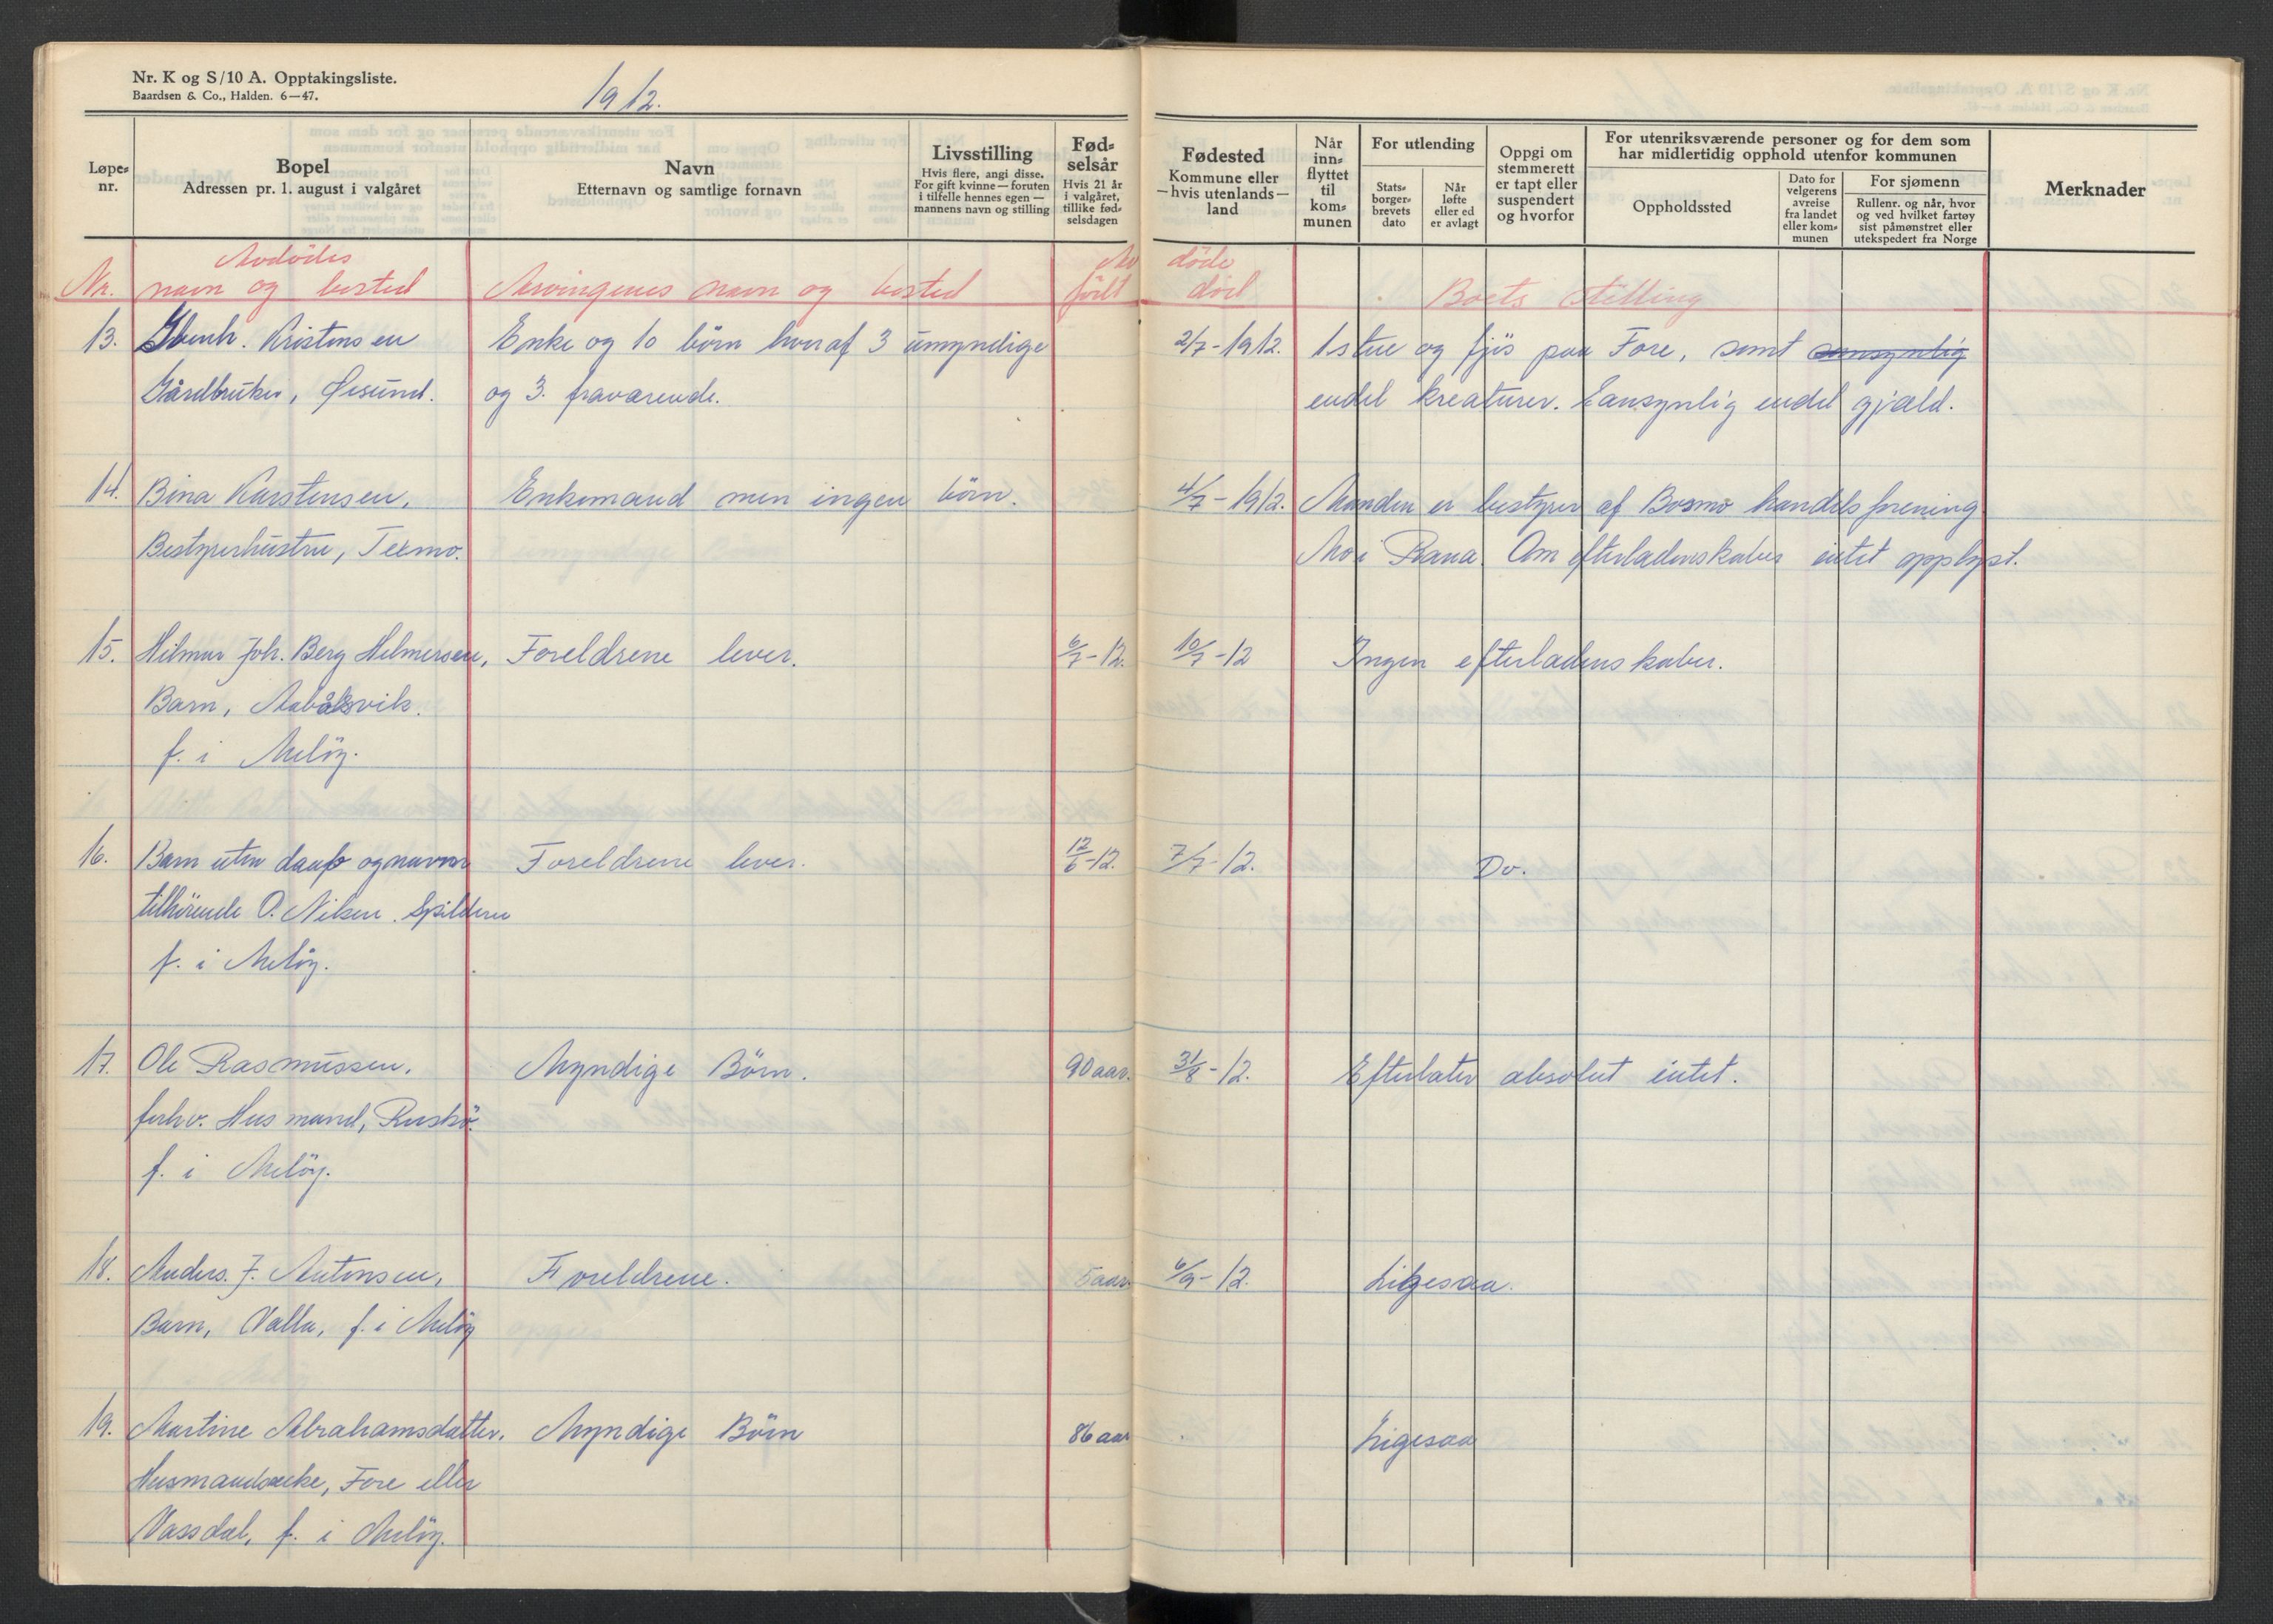 Nr. K og S/10 A. Opptakingsliste.
Baardsen & Co., Halden. 6—47.
1912.
Løpe-nr.
Bopel
Adressen pr. 1. august i valgåret
Navn
Etternavn og samtlige fornavn
Livsstilling
Hvis flere, angi disse. For gift kvinne — foruten i tilfelle hennes egen — mannens navn og stilling
Fød-selsår
Hvis 21 år i valgåret, tillike fød-selsdagen
Fødested
Kommune eller — hvis utenlands — land
Når inn-flyttet til kom-munen
For utlending
Stats-borger-brevets dato
Når løfte eller ed er avlagt
Oppgi om stemmerett er tapt eller suspendert og hvorfor
For utenriksværende personer og for dem som har midlertidig opphold utenfor kommunen
Oppholdssted
Dato for velgerens avreise fra landet eller kom-munen
For sjømenn
Rullenr. og når, hvor og ved hvilket fartøy sist påmønstret eller utekspedert fra Norge
Merknader
Avdödes Av döde
Nr. navn og bosted Arvingenes navn og bosted födt död Boets stilling
13. Kristensen Enke og 10 börn hvoraf 3 umyndige 2/7-1912. 1 stue og fjös paa Fore, samt sansynlig
Gårdbruker, Øesund. og 3. fraværende. endel kreaturer. Sansynlig endel gjæld.
14. Bina Karstensen, Enkemand men ingen börn. 4/7-1912. Manden er bestyrer af Bosmo handelsforening
Bestyrerhustru, Teksmo. Mo i Rana. Om efterladenskaber intet opplyst.
15. Hilmar Joh. Berg Helmersen, Foreldrene lever. 6/7-12. 10/7-12 Ingen efterladenskaber.
Barn, Aabålsvik.
f. i Melöy.
16. Barn uten daab og navn Foreldrene lever. 12/6-12. 7/7-12. Do.
tilhörende O. Nilsen. Spilderen
f. i Melöy.
17. Ole Rasmussen, Myndige Börn. 90 aar. 31/8-12. Efterlater absolut intet.
forhv. Husmand, Ruskö.
f. i Melöy.
18. Anders. J. Antonsen, Foreldrene. 5 aar. 6/9-12. Ligesaa.
Barn, Valla, f. i Melöy
19. Martine Abrahamsdatter, Myndige Börn 86 aar Ligesaa
Husmandsenke, Fore eller
Vassdal, f. i Melöy.